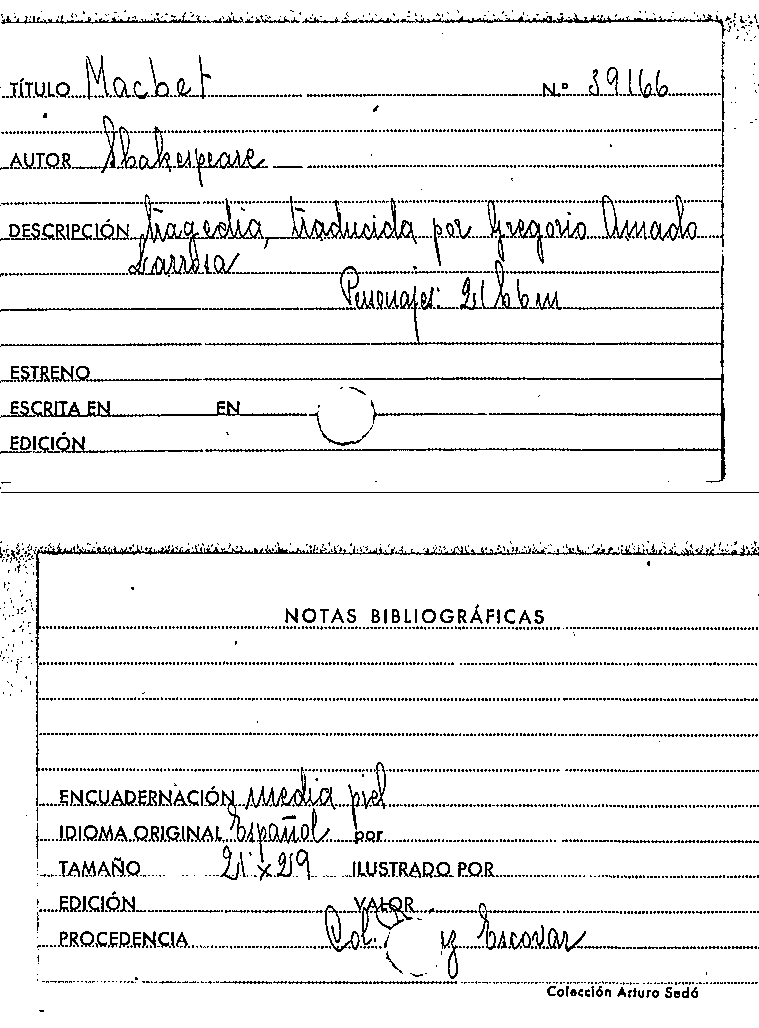 TÍTULO Macbet N.º 39166
AUTOR Shakespeare
DESCRIPCIÓN tragedia, traducida por Gregorio Amado
Larrosa
Personajes: 21 h 6 m
ESTRENO
ESCRITA EN EN
EDICIÓN
NOTAS BIBLIOGRÁFICAS
ENCUADERNACIÓN media piel
IDIOMA ORIGINAL Español por
TAMAÑO 21 x ILUSTRADO POR
EDICIÓN VALOR
PROCEDENCIA Col. z Escovar
Colección Arturo Sedó